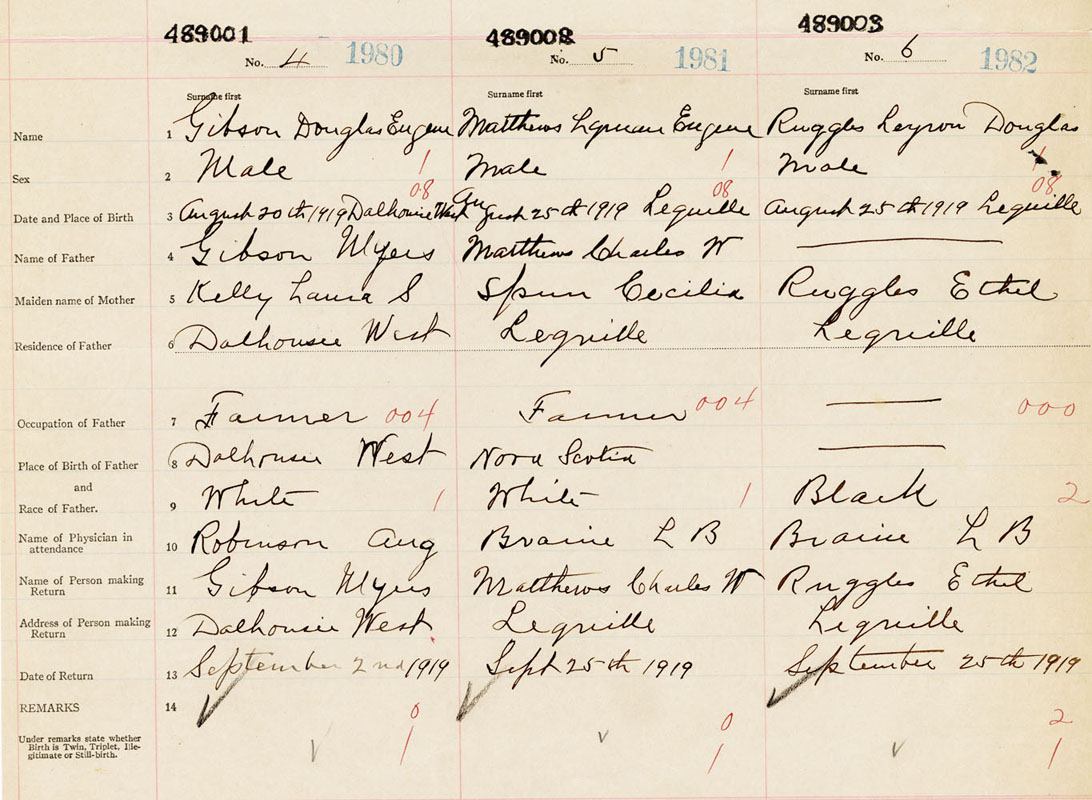 489001 489002 489003
No. 4 1980 No. 5 1981 No. 6 1982
Surname first Surname first Surname first
Name 1 Gibson Douglas Eugene Matthews Lyman Eugene Ruggles Leyron Douglas
Sex 2 Male 1 Male 1 Male 1
08 08 08
Date and Place of Birth 3 August 20th 1919 Dalhousie West August 25th 1919 Lequille August 25th 1919 Lequille
Name of Father 4 Gibson Myers Matthews Charles W
Maiden name of Mother 5 Kelly Laura S Cecilia Ruggles Ethel
Residence of Father 6 Dalhousie West Lequille Lequille
Occupation of Father 7 Farmer 004 Farmer 004 000
Place of Birth of Father 8 Dalhousie West Nova Scotia
and
Race of Father. 9 White 1 White 1 Black 2
Name of Physician in
attendance 10 Robinson Aug Braine L B Braine L B
Name of Person making
Return 11 Gibson Myers Matthews Charles W Ruggles Ethel
Address of Person making
Return 12 Dalhousie West Lequille Lequille
Date of Return 13 September 2nd 1919 Sept 25th 1919 September 25th 1919
REMARKS 14
0 0 2
Under remarks state whether
Birth is Twin, Triplet, Ille-
gitimate or Still-birth.
1 1 1